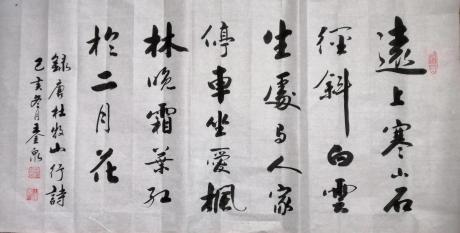 遠上寒山石
徑斜白雲
生處有人家
停車坐愛楓
林晚霜葉紅
於二月花
録唐杜牧山行詩
己亥冬月奎泉